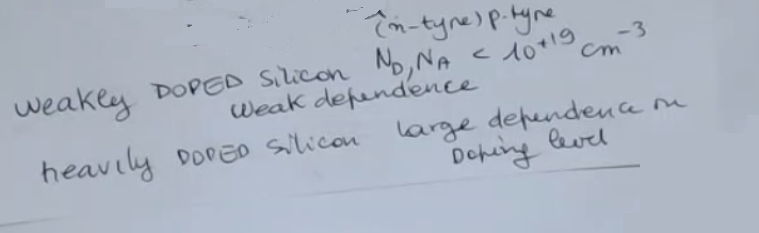 (n-type) p-type
weakly DOPED silicon N_D, N_A < 10^+19 cm^-3
weak dependence
heavily DOPED silicon large dependence on
Doping level